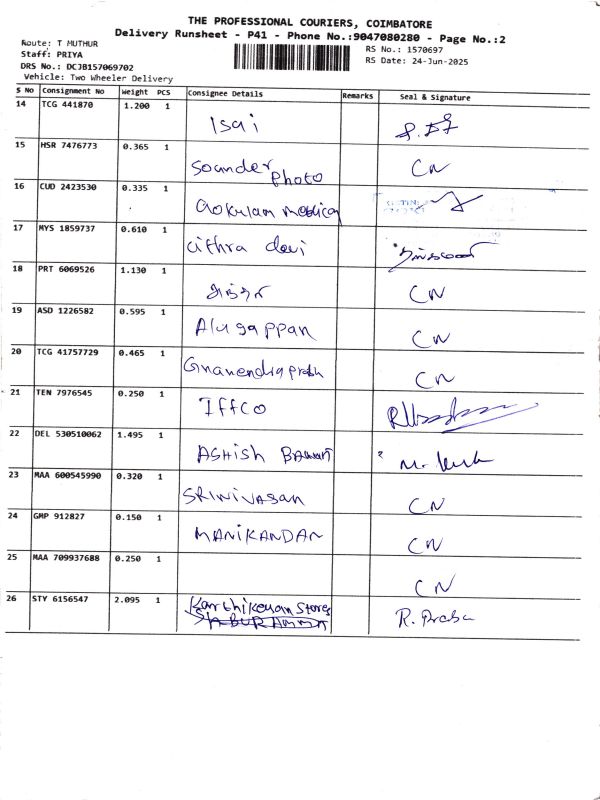 THE PROFESSIONAL COURIERS, COIMBATORE
Delivery Runsheet - P41 - Phone No.:9047080280 - Page No.:2
Route: T MUTHUR
Staff: PRIYA
DRS No.: DCJB157069702
Vehicle: Two Wheeler Delivery
RS No.: 1570697
RS Date: 24-Jun-2025
S No Consignment No Weight PCS Consignee Details Remarks Seal & Signature
14 TCG 441870 1.200 1 Isai
15 HSR 7476773 0.365 1 Sounder Photo CN
16 CUD 2423530 0.335 1 Gokulam medical
17 MYS 1859737 0.610 1 Cithra devi
18 PRT 6069526 1.130 1 CN
19 ASD 1226582 0.595 1 Alugappan CN
20 TCG 41757729 0.465 1 CN
21 TEN 7976545 0.250 1 Iffco
22 DEL 530510062 1.495 1 Ashish
23 MAA 600545990 0.320 1 SRINIVASAN CN
24 GMP 912827 0.150 1 MANIKANDAN CN
25 MAA 709937688 0.250 1 CN
26 STY 6156547 2.095 1 Karthikeyan Stores R. Praba